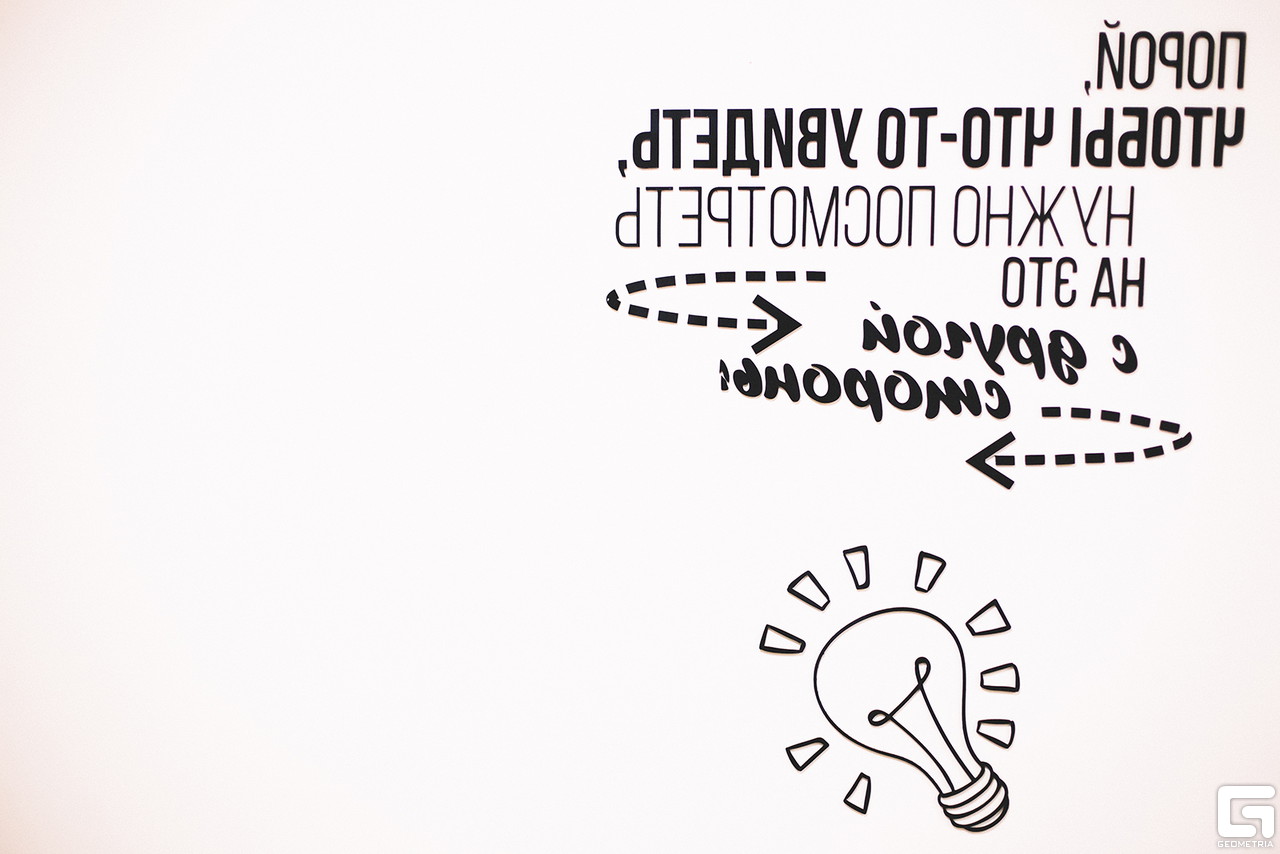 ПОРОЙ,
ЧТОБЫ ЧТО-ТО УВИДЕТЬ,
НУЖНО ПОСМОТРЕТЬ
НА ЭТО
с другой
стороны
GEOMETRIA